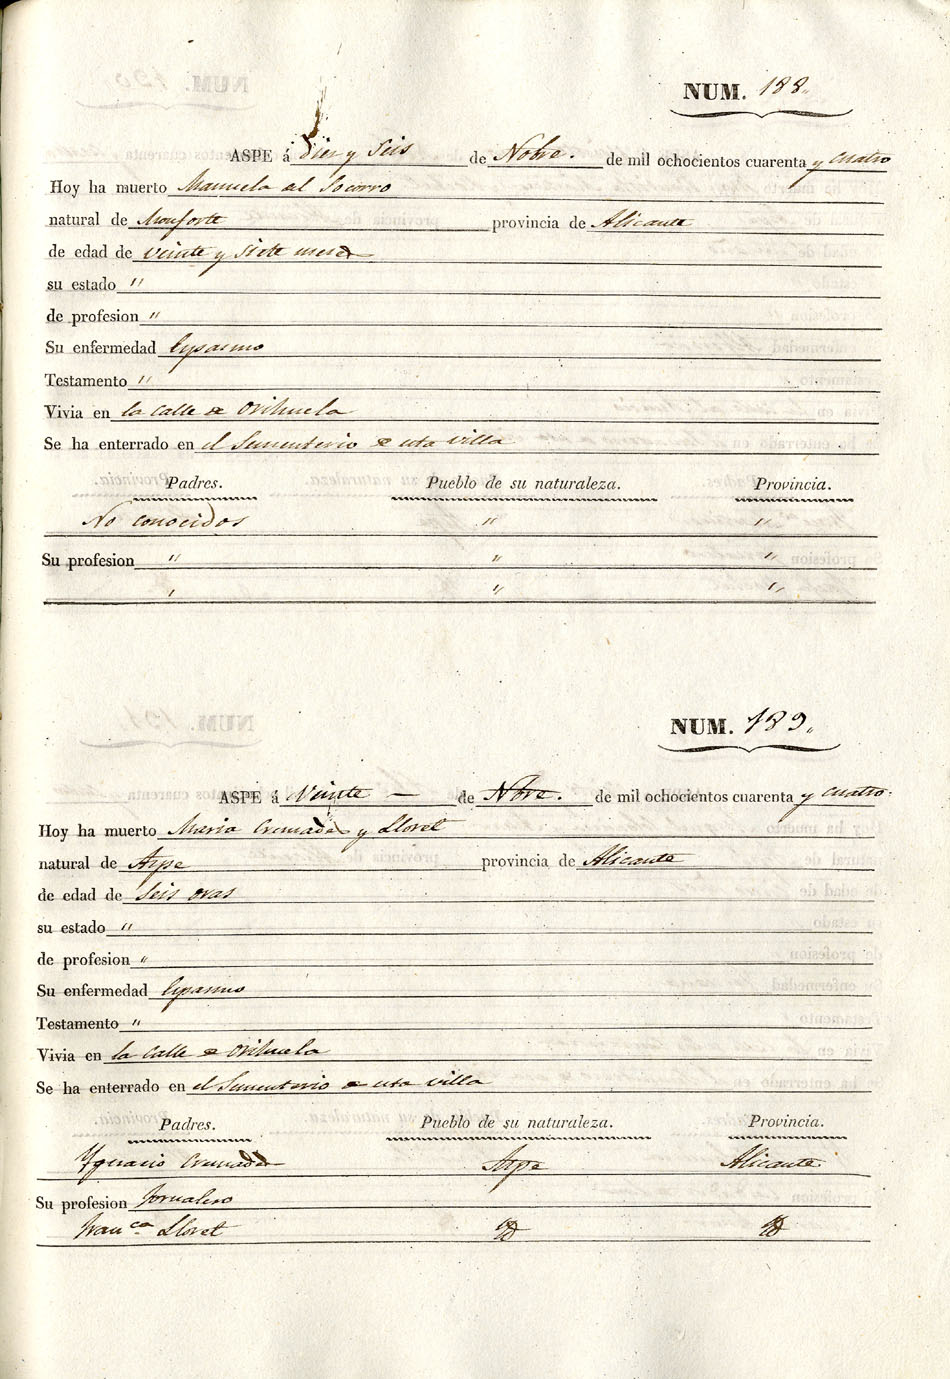 NUM. 188.
ASPE á Diez y Seis de Nobre. de mil ochocientos cuarenta y cuatro
Hoy ha muerto Manuela al Socorro
natural de Monforte provincia de Alicante
de edad de veinte y siete meses
su estado "
de profesion "
Su enfermedad Espasmo
Testamento "
Vivia en la Calle de Orihuela
Se ha enterrado en el Sementerio de esta villa
Padres. Pueblo de su naturaleza. Provincia.
No conocidos " "
Su profesion " " "
" " "
NUM. 189.
ASPE á Veinte — de Nbre. de mil ochocientos cuarenta y cuatro.
Hoy ha muerto Maria Cremades y Lloret
natural de Aspe provincia de Alicante
de edad de Seis oras
su estado "
de profesion "
Su enfermedad Espasmo
Testamento "
Vivia en la Calle de Orihuela
Se ha enterrado en el Sementerio de esta villa
Padres. Pueblo de su naturaleza. Provincia.
Ygnacio Cremades Aspe Alicante
Su profesion Jornalero
Franca. Lloret Yd Yd